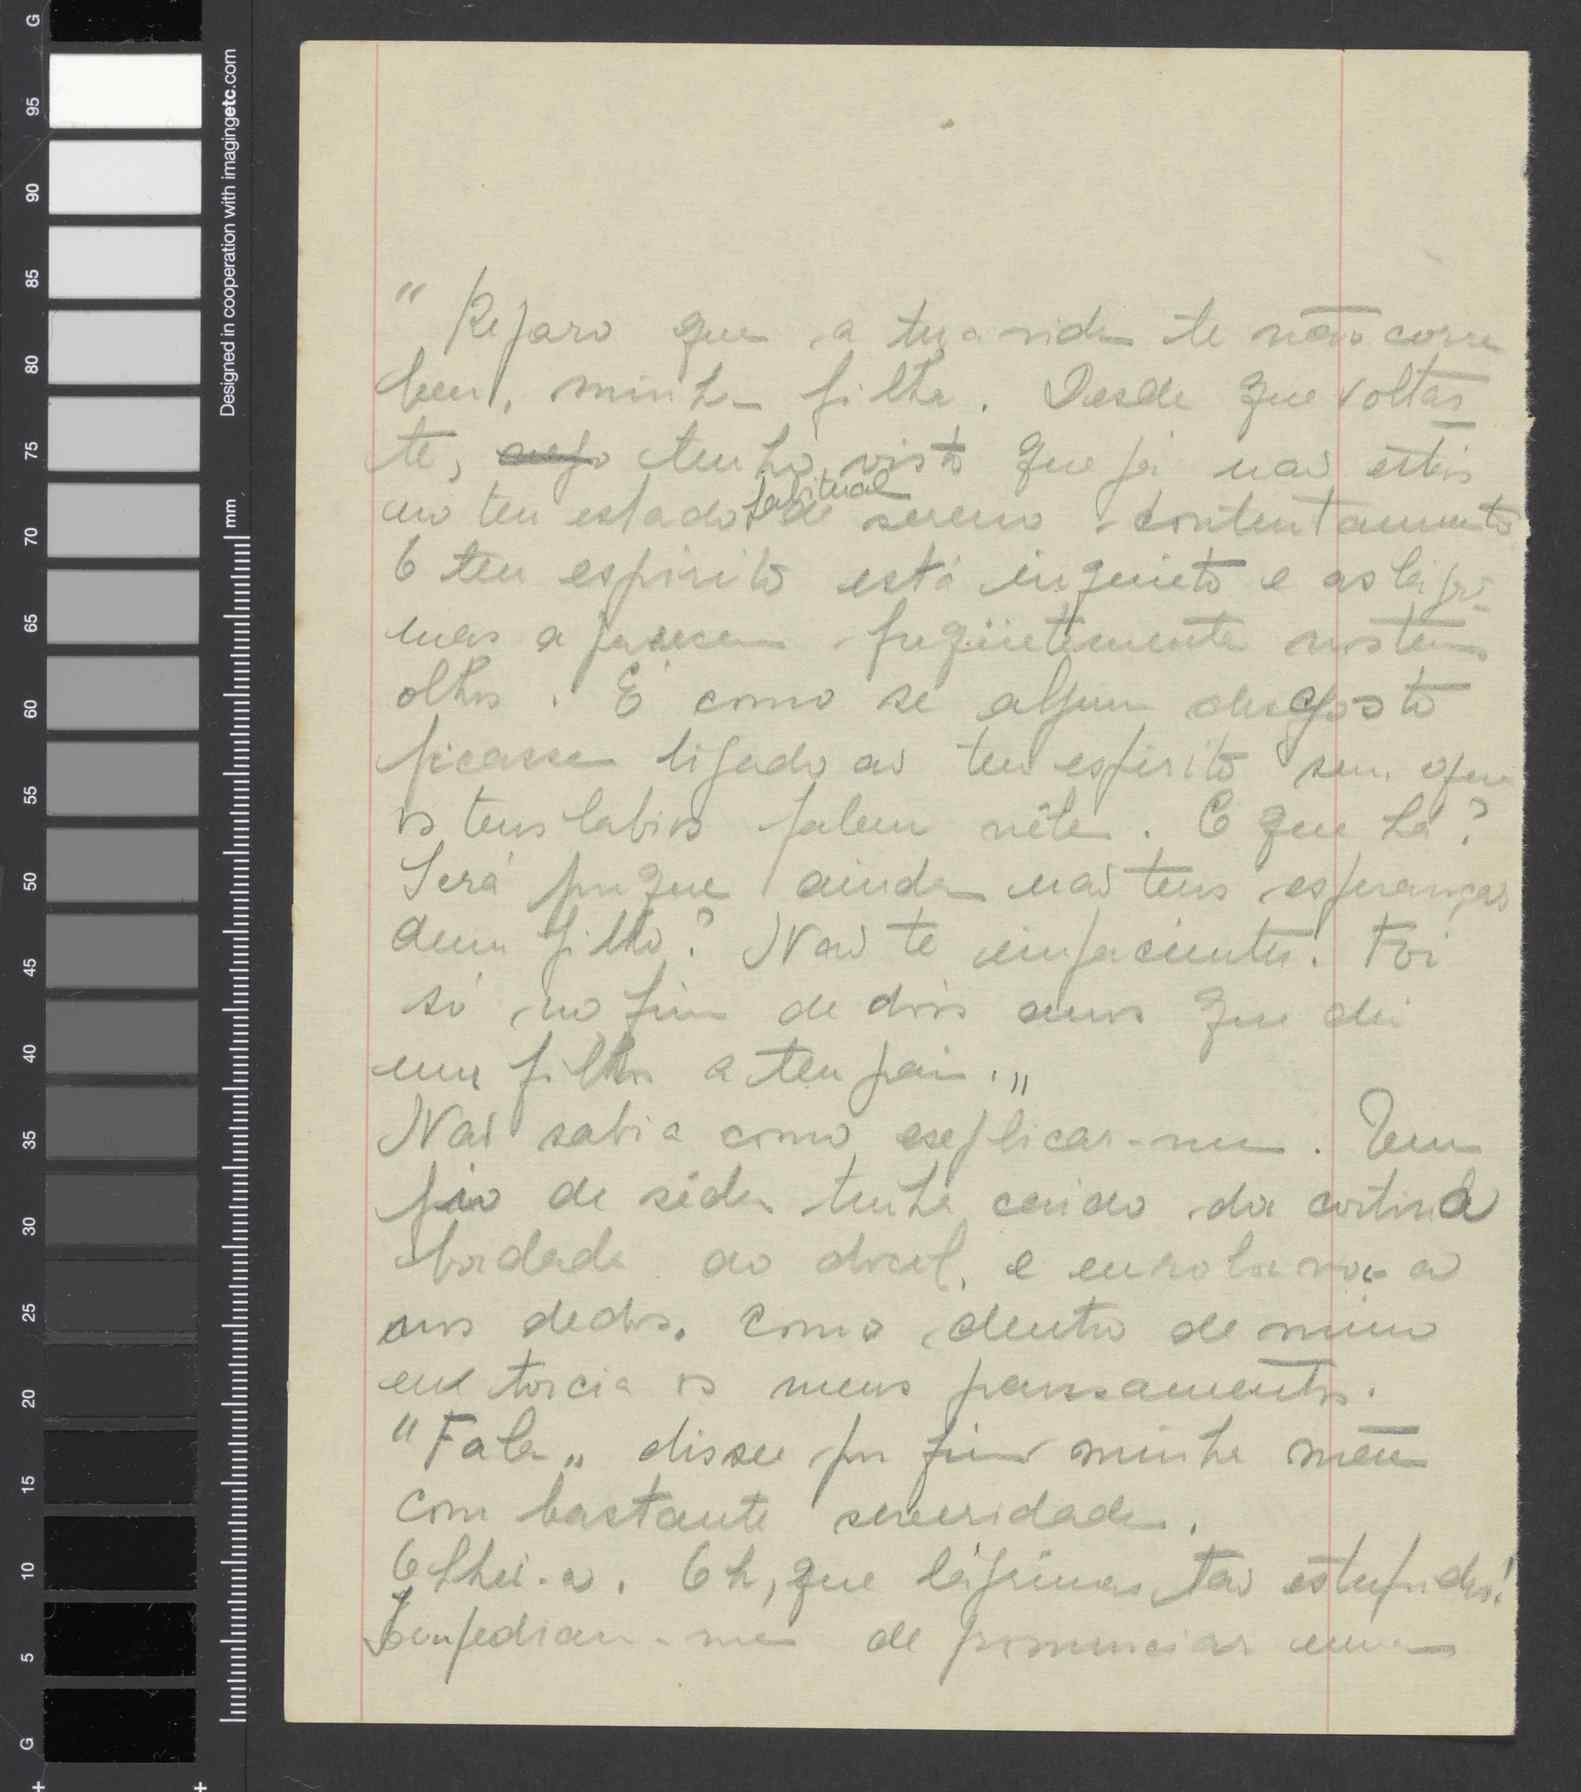 " Reparo que a tua vida te não corre
bem, minha filha. Desde que voltas
te, vejo tenho visto que já não estás
no teu estado habitual de sereno contentamento
O teu espirito está inquieto e as lágri-
mas aparecem freqüetemente nos teus
olhos. É como se algum desgosto
ficasse ligado ao teu espirito sem que
os teus labios falem nêle. O que há?
Será porque ainda não tens esperanças
dum filho? Não te impacientes. Foi
só no fim de dois anos que dei
um filho a teu pai."
Não sabia como explicar-me. Um
fio de sêda tinha caido da cortina
bordada ao docel, e enrolava-o
aos dedos, como dentro de mim
eu torcia os meus pensamentos.
"Fala" disse por fim minha mãe
com bastante severidade.
Olhei-a. Oh, que lágrimas tão estupidas!
Impediam-me de pronunciar uma
Designed in cooperation with imagingetc.com
mm
G
95
90
85
80
75
70
65
60
55
50
45
40
35
30
25
20
15
10
5
G